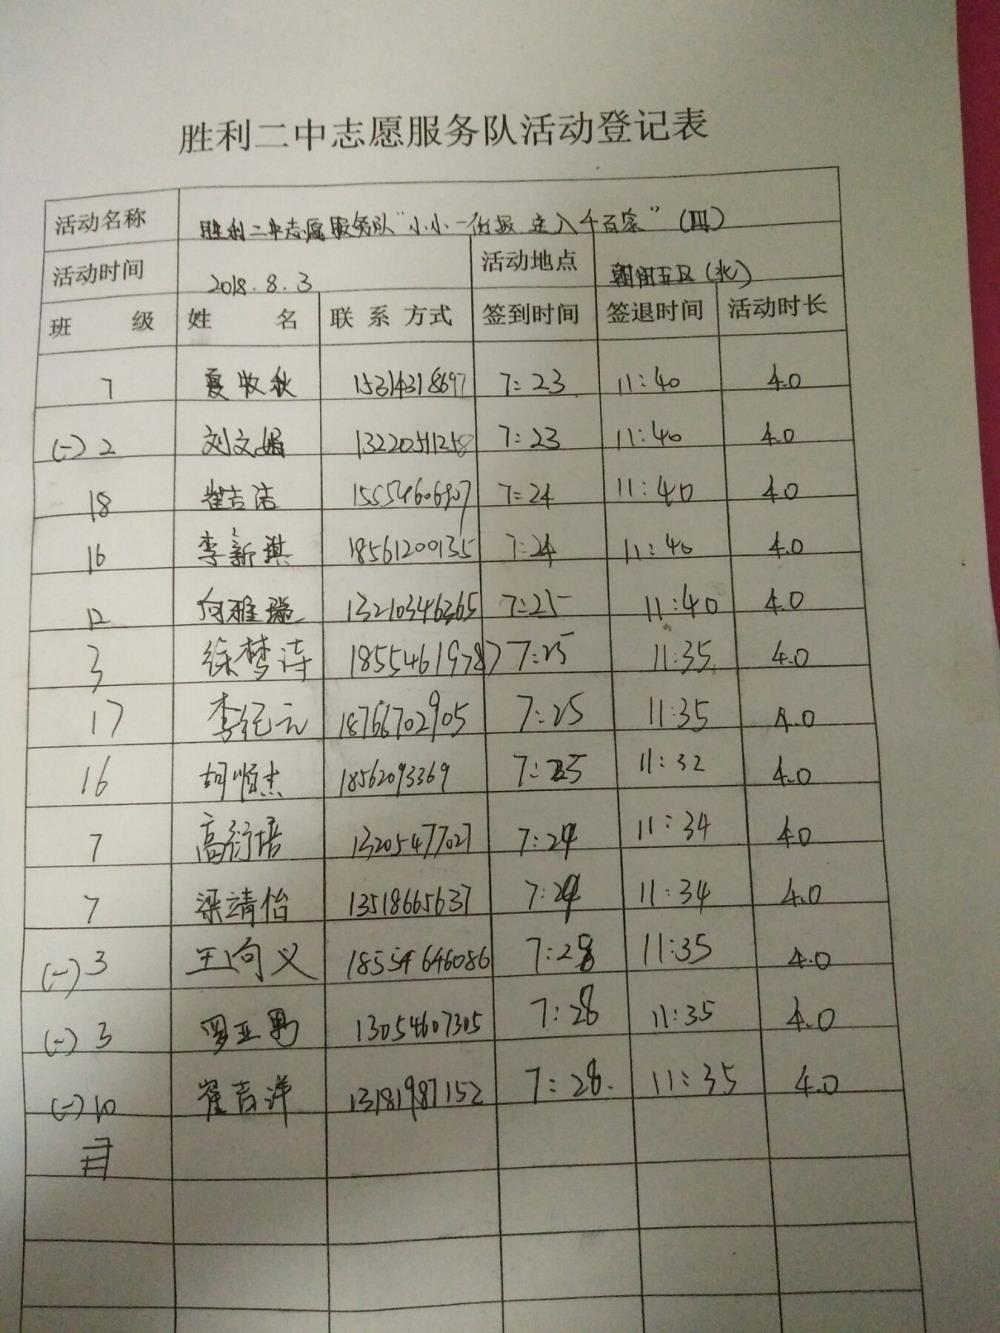 胜利二中志愿服务队活动登记表
活动名称 胜利二中志愿服务队“小小一份报 走入千百家”(四)
活动时间 2018.8.3 活动地点 朝阳五区(北)
班 级 姓 名 联系方式 签到时间 签退时间 活动时长
7 夏牧秋 15314318697 7:23 11:40 4.0
(一)2 刘文娟 13220511258 7:23 11:40 4.0
18 崔吉洁 15554606907 7:24 11:40 4.0
16 李新琪 18561200135 7:24 11:40 4.0
12 向雅璇 13210346365 7:25 11:40 4.0
3 徐梦诗 18554619787 7:25 11:35 4.0
17 李纪元 18766702905 7:25 11:35 4.0
16 胡顺杰 18562093369 7:25 11:32 4.0
7 高衍培 13205477027 7:24 11:34 4.0
7 梁靖怡 13518665637 7:24 11:34 4.0
(一)3 王向义 18554646086 7:28 11:35 4.0
(一)3 罗亚男 13054607305 7:28 11:35 4.0
(一)10 崔吉洋 13181987152 7:28. 11:35 4.0